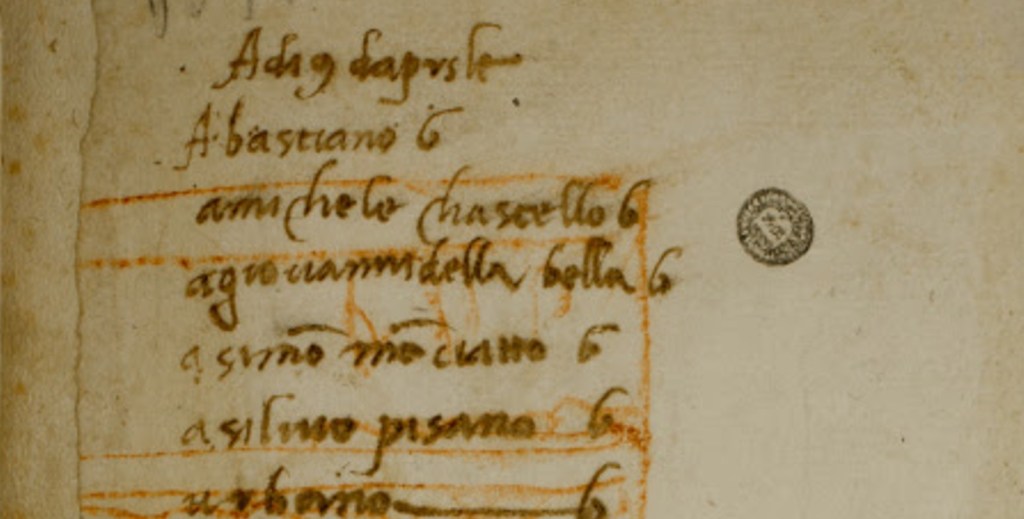 Adi 9 daprile
A bastiano 6
amichele chastello 6
agiovanni della bella 6
asimō mōciatto 6
asilvio pisano 6
urbano 6